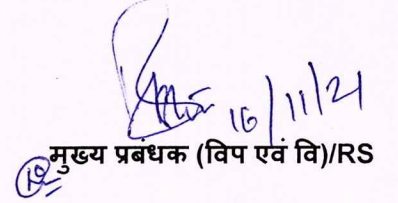 16/11/21
मुख्य प्रबंधक (विप एवं वि)/RS